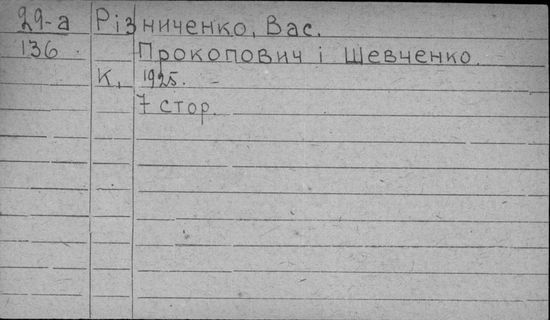 29-а Різниченко, Вас.
136. Прокопович і Шевченко.
К., 1925. –
7 стор.